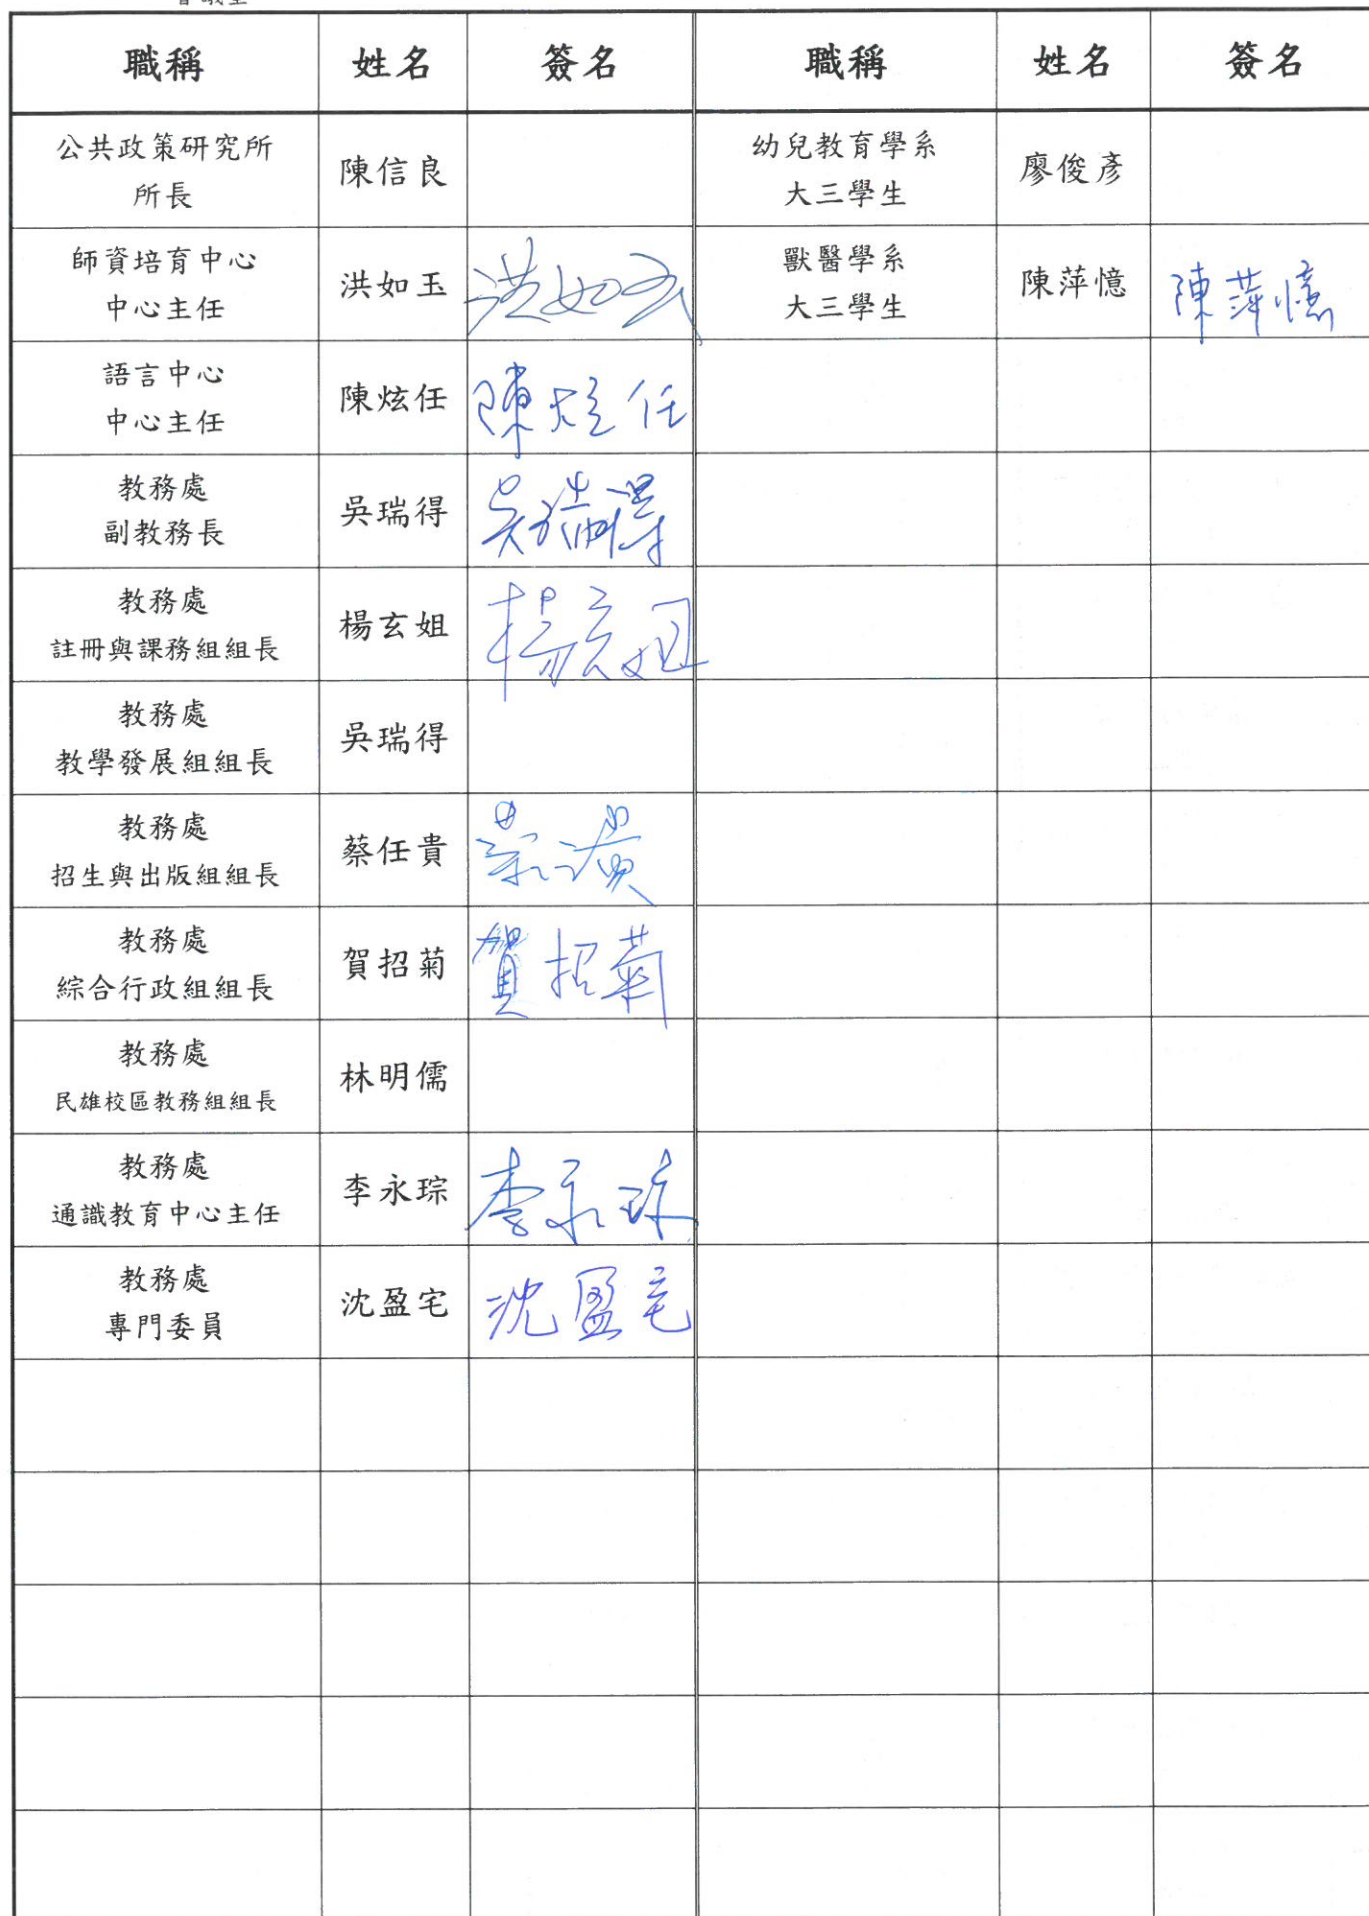 職稱 姓名 簽名 職稱 姓名 簽名
公共政策研究所
所長
陳信良
幼兒教育學系
大三學生
廖俊彥
師資培育中心
中心主任
洪如玉
洪如玉
獸醫學系
大三學生
陳萍憶
陳萍憶
語言中心
中心主任
陳炫任
陳炫任
教務處
副教務長
吳瑞得
吳瑞得
教務處
註冊與課務組組長
楊玄姐
楊玄姐
教務處
教學發展組組長
吳瑞得
教務處
招生與出版組組長
蔡任貴
教務處
綜合行政組組長
賀招菊
賀招菊
教務處
民雄校區教務組組長
林明儒
教務處
通識教育中心主任
李永琮
李永琮
教務處
專門委員
沈盈宅
沈盈宅